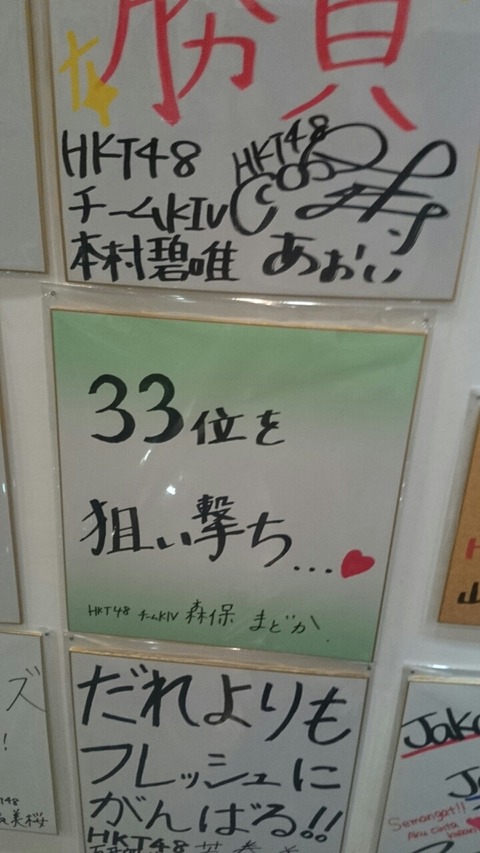 勝負
HKT48
チームKIV
本村碧唯
HKT48
あおい
33位を
狙い撃ち...♥
HKT48 チームKIV 森保 まどか
だれよりも
フレッシュに
がんばる!!
HKT48
ズ
!
美桜
H
山
Jak
Semangat!!
Aku cinta